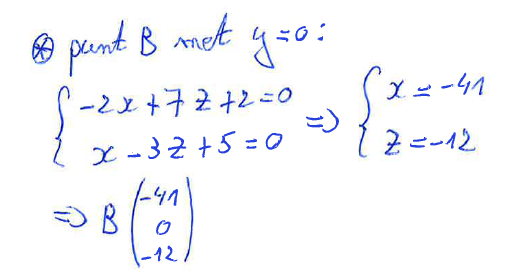 ⊛ punt B met y=0:
{ -2x+7z+2=0 => { x=-41
{ x-3z+5=0 { z=-12
=> B (-41
0
-12)